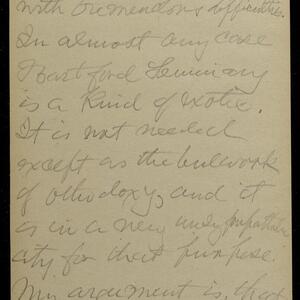 with tremendous opposition.
In almost any case
Hartford Seminary
is a kind of exotic.
It is not needed
except as the bulwork
of orthodoxy, and it
is in a very unsympathetic
city for that purpose.
My argument is that